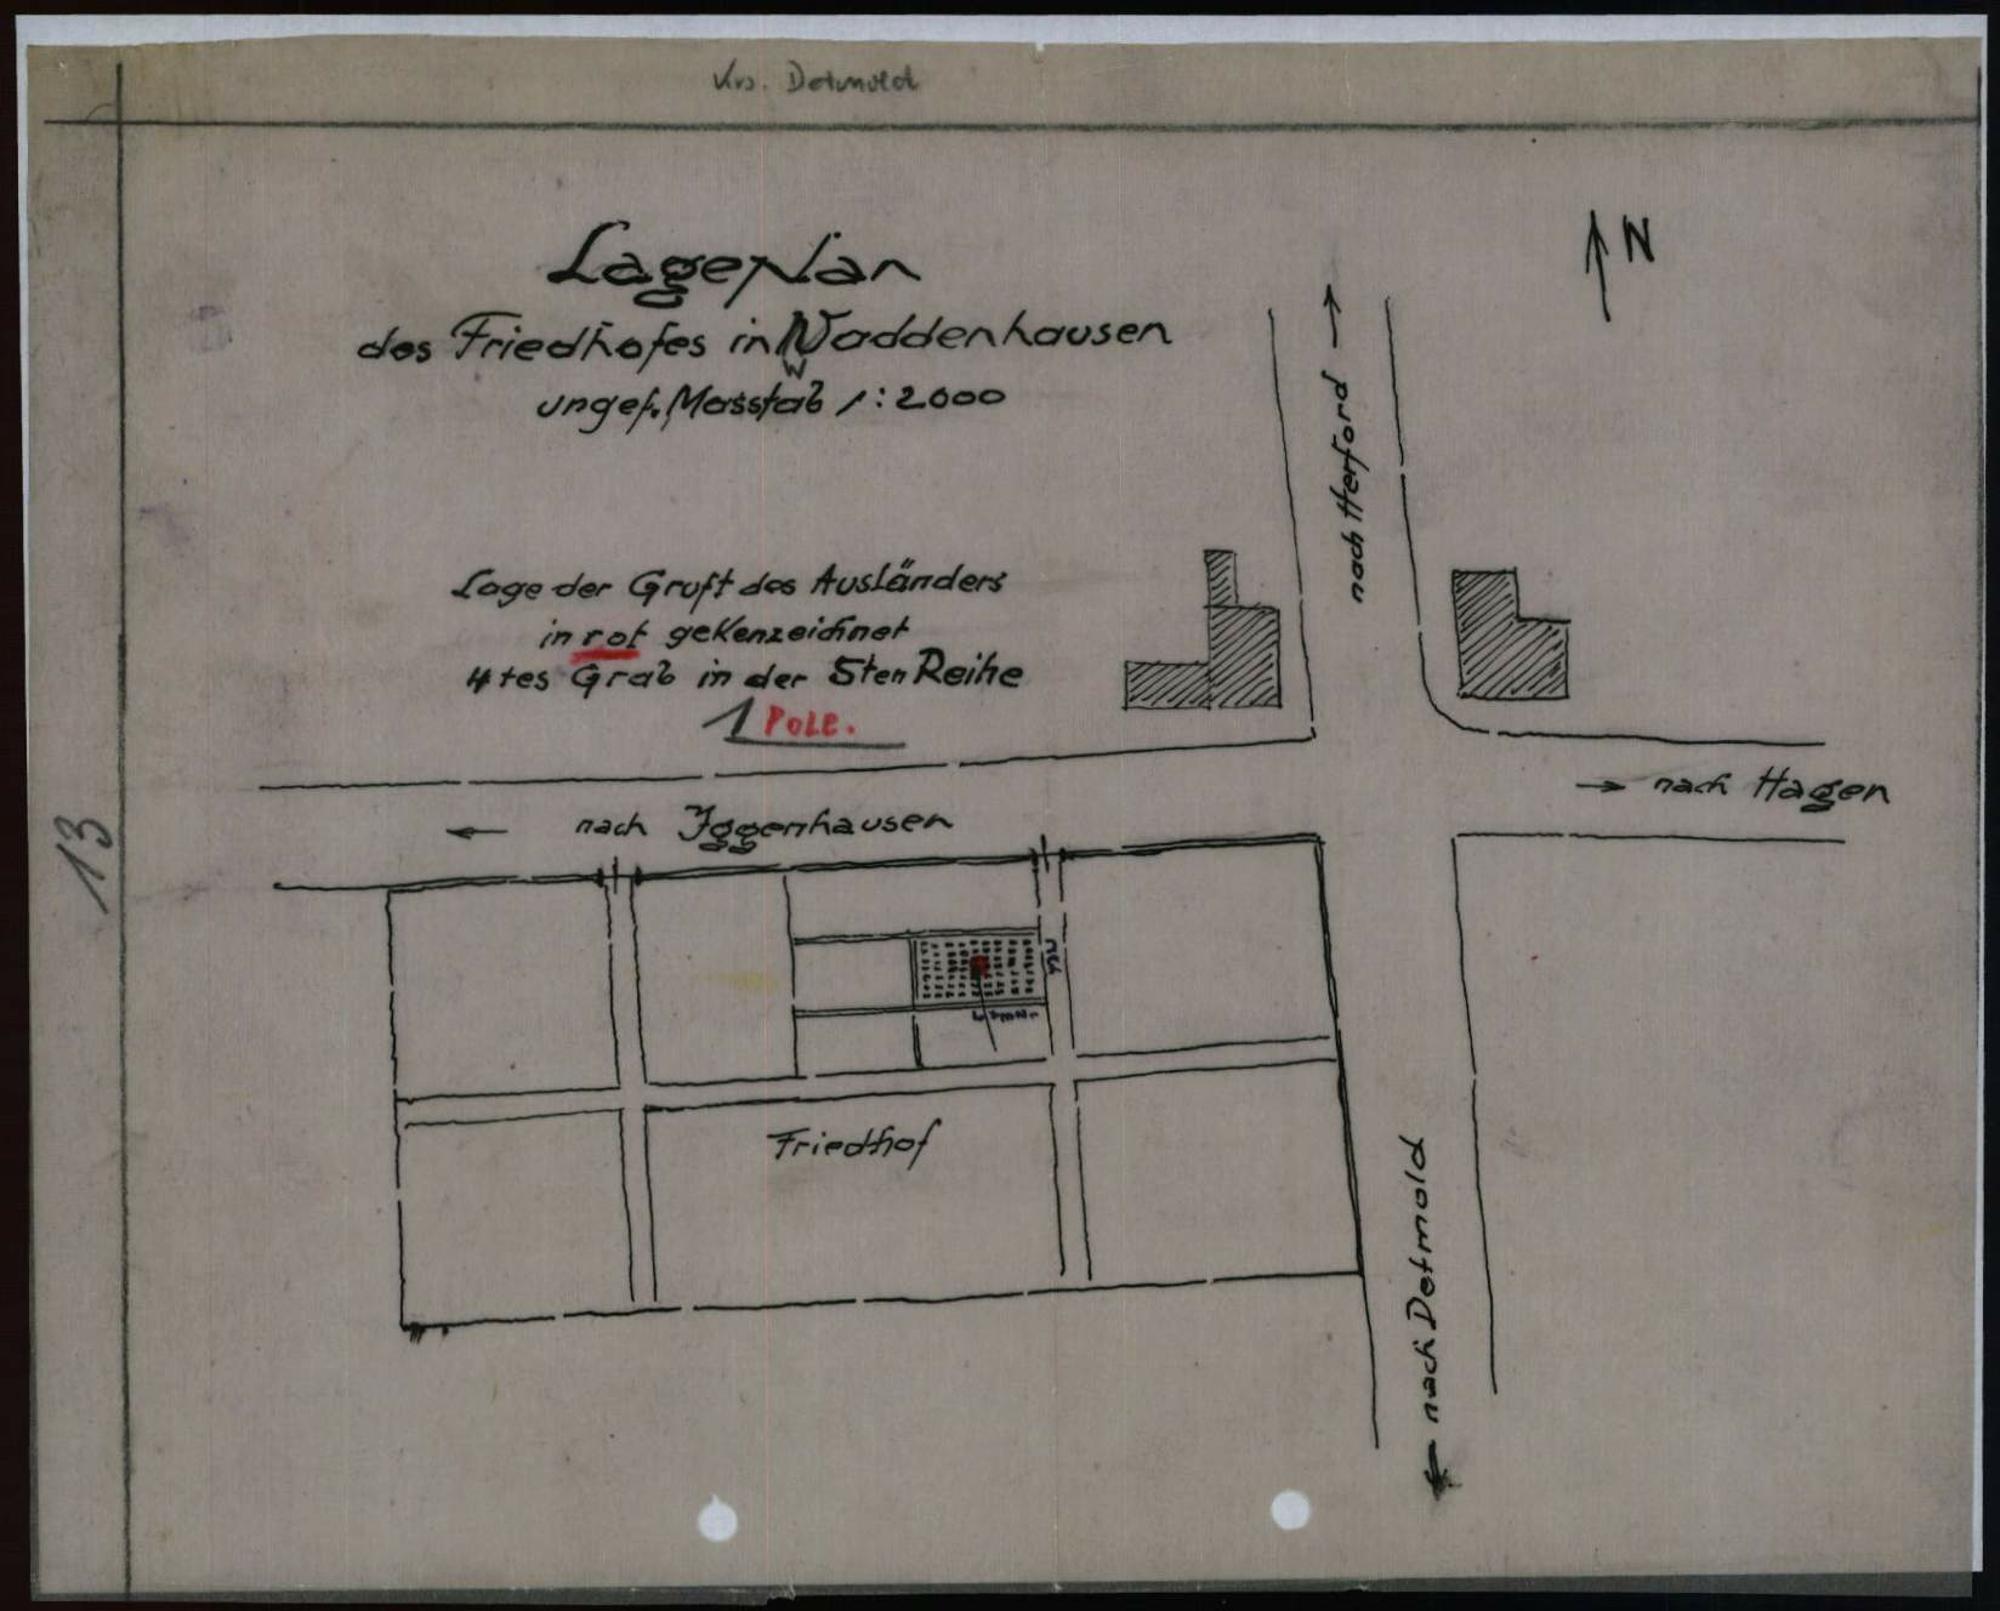 Krs. Detmold
Lageplan
des Friedhofes in Waddenhausen
W
ungef. Masstab 1:2000
N
nach Herford
Lage der Gruft des Ausländers
in rot gekenzeichnet
4tes Grab in der 5ten Reihe
1 POLE.
nach Hagen
nach Iggenhausen
13
Friedhof
nach Detmold